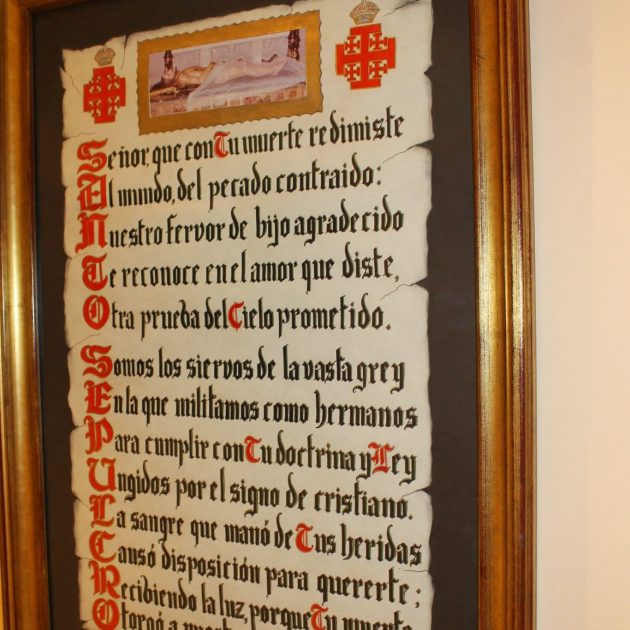 Señor, que con Tu muerte redimiste
Al mundo, del pecado contraido:
Nuestro fervor de hijo agradecido
Te reconoce en el amor que diste,
Otra prueba del Cielo prometido.
Somos los siervos de la vasta grey
En la que militamos como hermanos
Para cumplir con Tu doctrina y Ley
Ungidos por el signo de cristiano.
La sangre que manó de Tus heridas
Causó disposición para quererte;
Recibiendo la luz, porque Tu muerte
Otorgó a